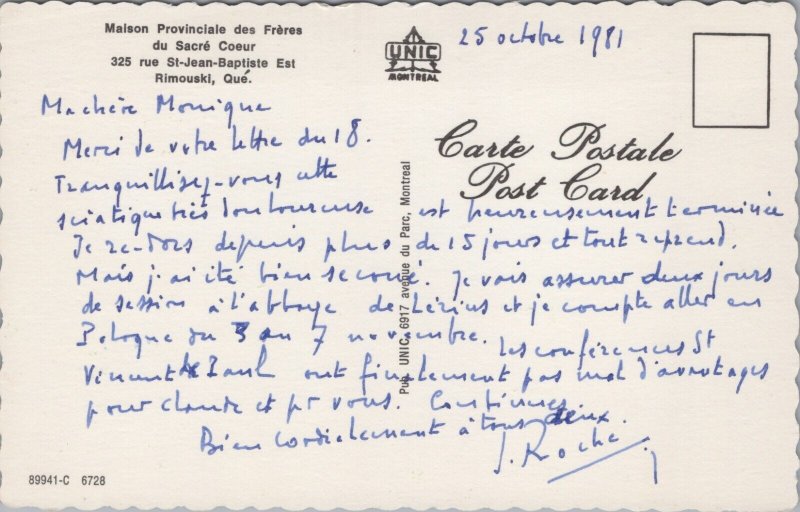 Maison Provinciale des Frères
du Sacré Coeur
325 rue St-Jean-Baptiste Est
Rimouski, Qué.
UNIC
MONTREAL
25 octobre 1981
Carte Postale
Post Card
Pub. UNIC, 6917 avenue du Parc, Montreal
Ma chère Monique
Merci de votre lettre du 18.
Tranquillisez-vous cette
sciatique très douloureuse est heureusement terminée
Je re-dors depuis plus de 15 jours et tout reprend.
Mais j'ai été bien secoué. Je vais assurer deux jours
de session à l'abbaye de Lérins et je compte aller en
Pologne du 3 au 7 novembre. Les conférences St
Vincent de Paul ont finalement pas mal d'avantages
pour Claude et pr vous. Continuez.
Bien cordialement à tous deux.
J. Roche
89941-C 6728